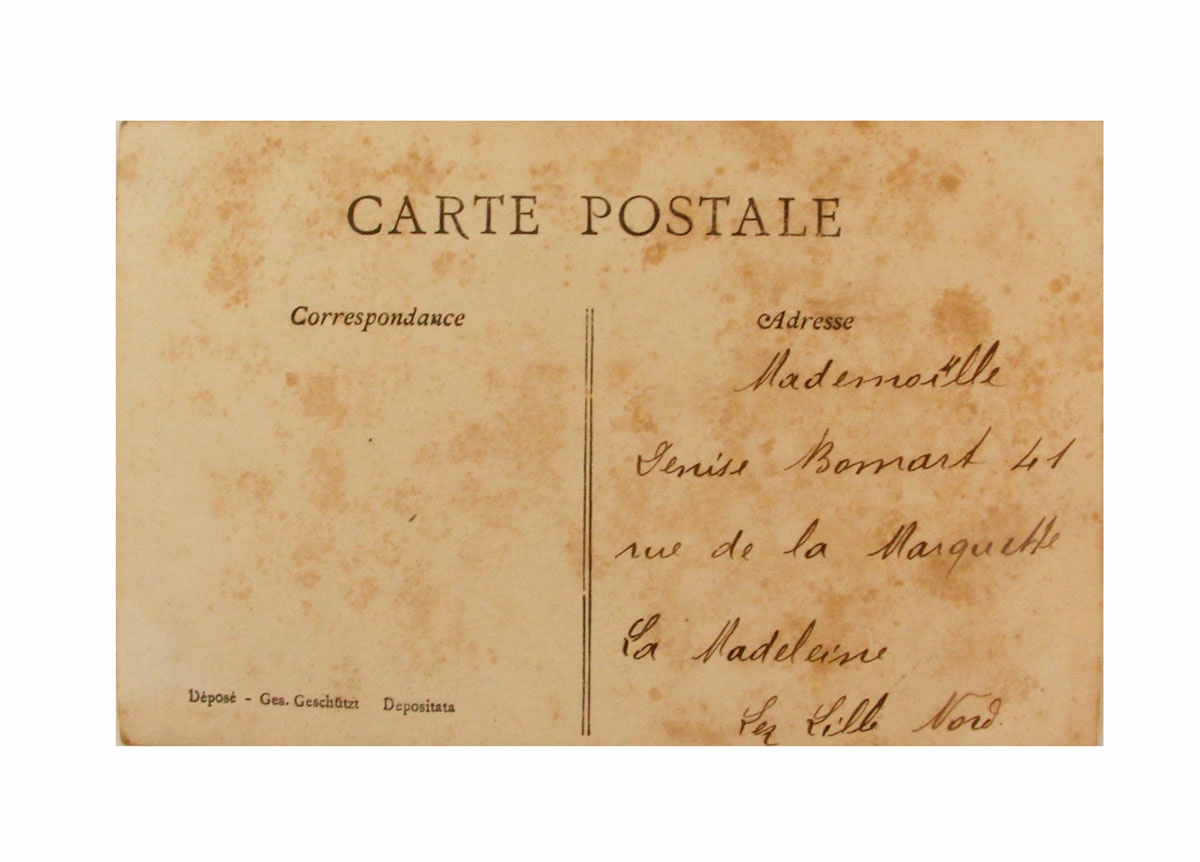 CARTE POSTALE
Correspondance
Adresse
Mademoïlle
Denise Bomart 41
rue de la Marquette
La Madeleine
Lez Lille Nord.
Déposé - Ges. Geschützt Depositata